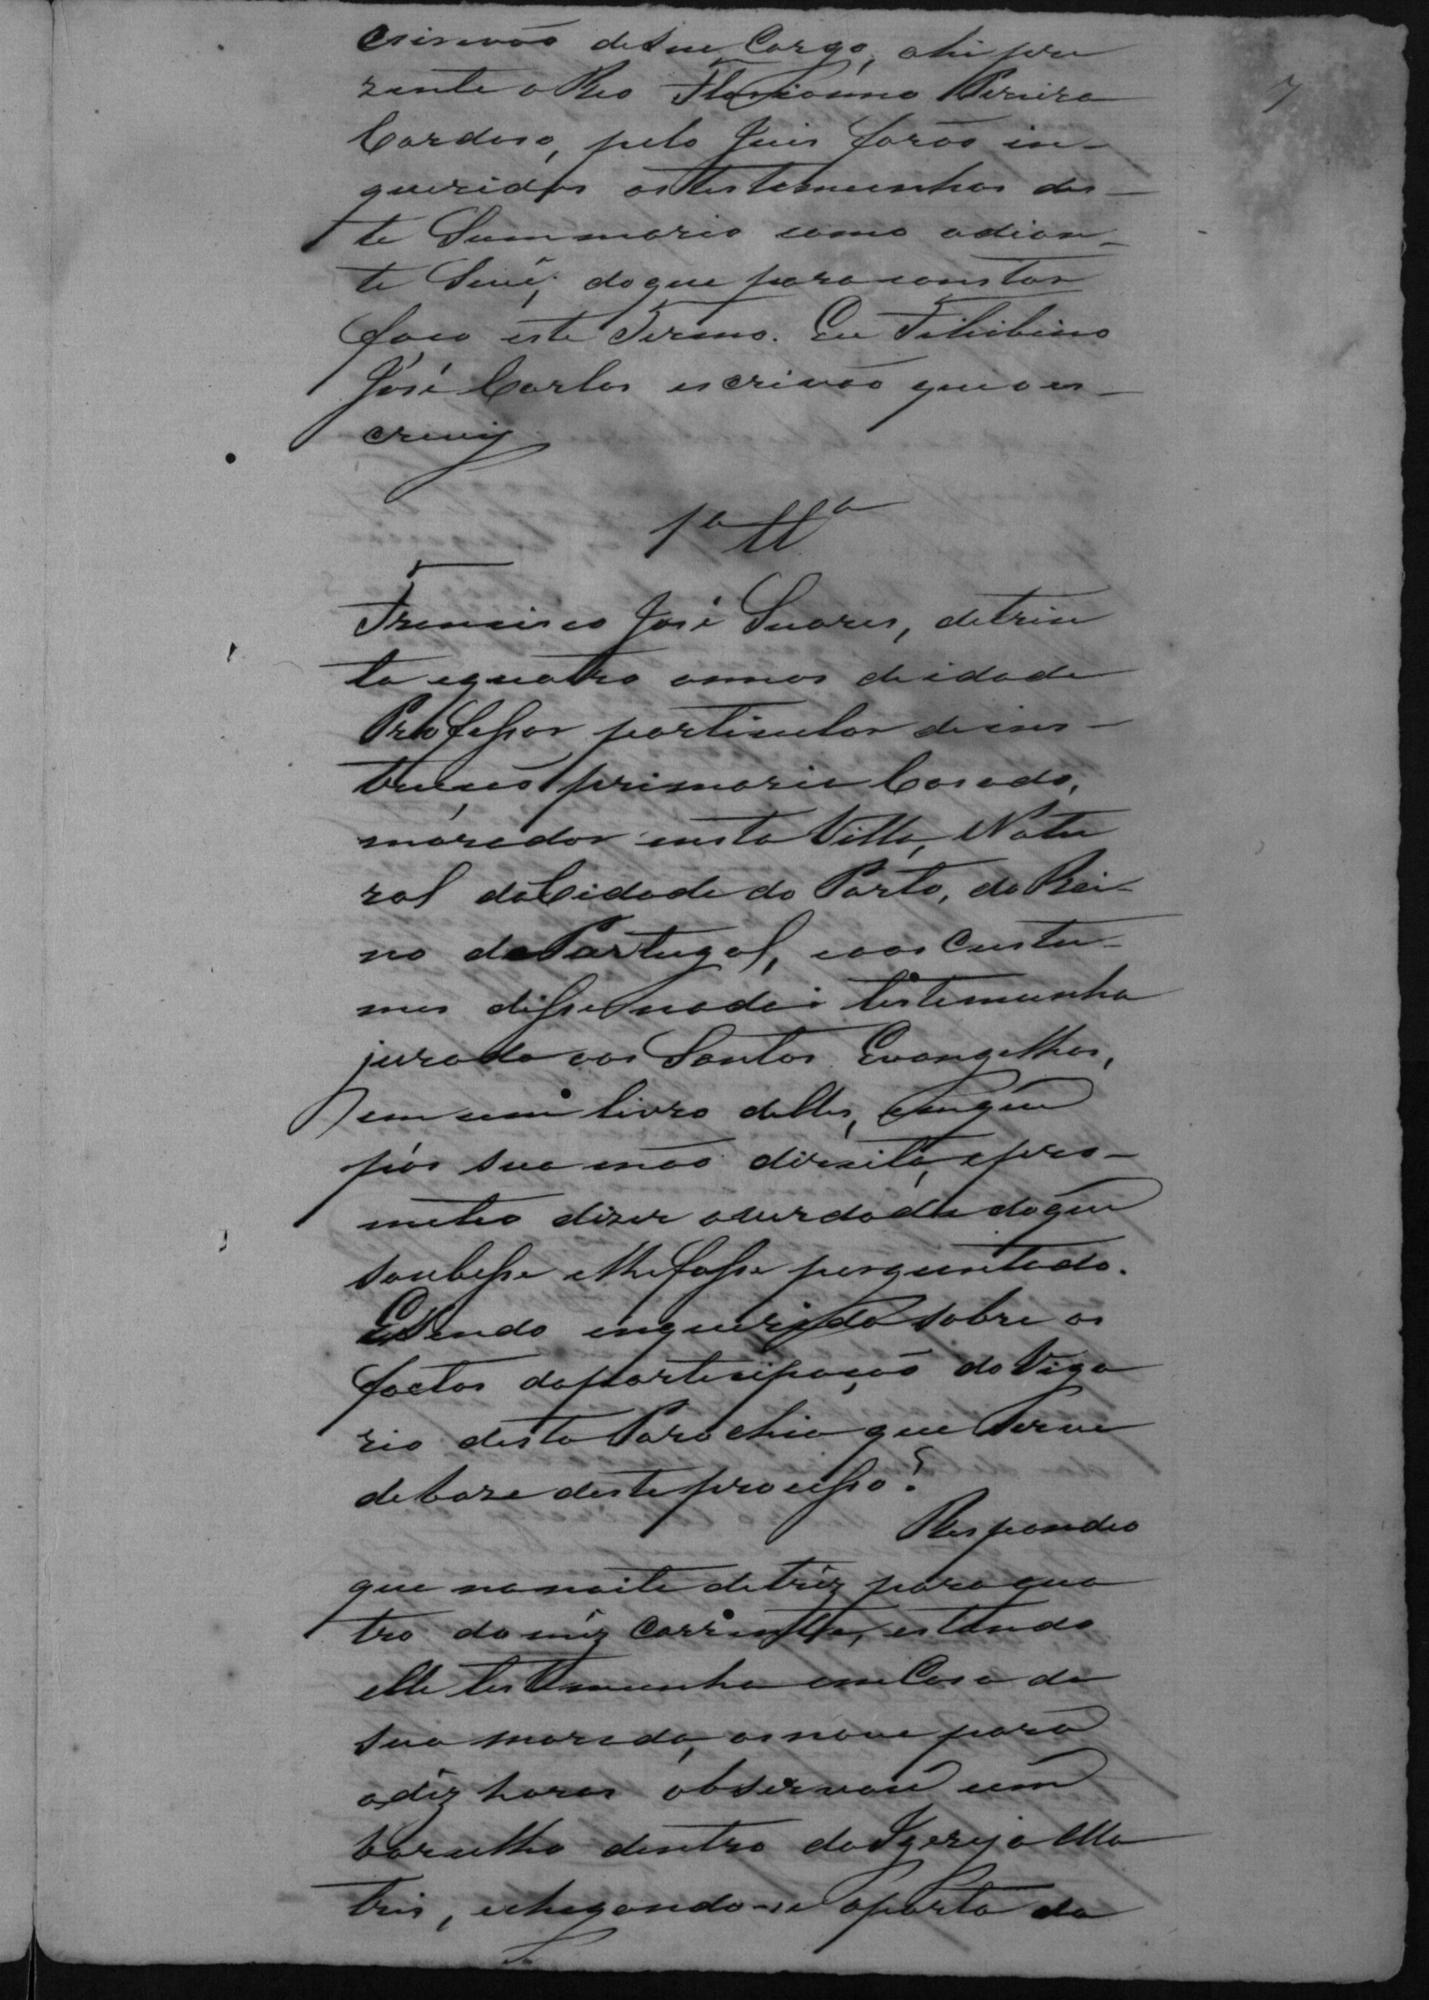 crivão de seu Cargo, ahi pre
zente o Reo Flavianno Pereira
Cardoso, pelo Juis forão in-
queridas as testemunhas des-
te Summario como adian-
te Se vê; do que para constar
faco este Termo. Eu
José Carlos escrivão que o es-
crevy
1ª Ttª
Francisco José Suares, de trin
ta e quatro annos de idade
Professor particular de ins-
trucão primaria Casado,
morador nesta Villa, Natu
ral da Cidade do Porto, do Rei-
no de Portugal, e aos Custu-
mes disse nada: testemunha
jurada aos Santos Evangelhos,
em um livro delles, em que
pôs sua mão direita, e pro-
meteo dizer a verdade do que
soubesse e lhe fosse perguntado.
E Sendo enquerido sobre os
factos da participação do Viga
rio desta Parochia que Serve
de baze deste processo?
Respondeo
que na noite de trêz para qua
tro do mêz Corrente, estando
elle testemunha em Casa de
sua morada, as nove para
a dêz horas observou um
barulho dentro da Igreja Ma
tris, e chegando-se a porta da
7